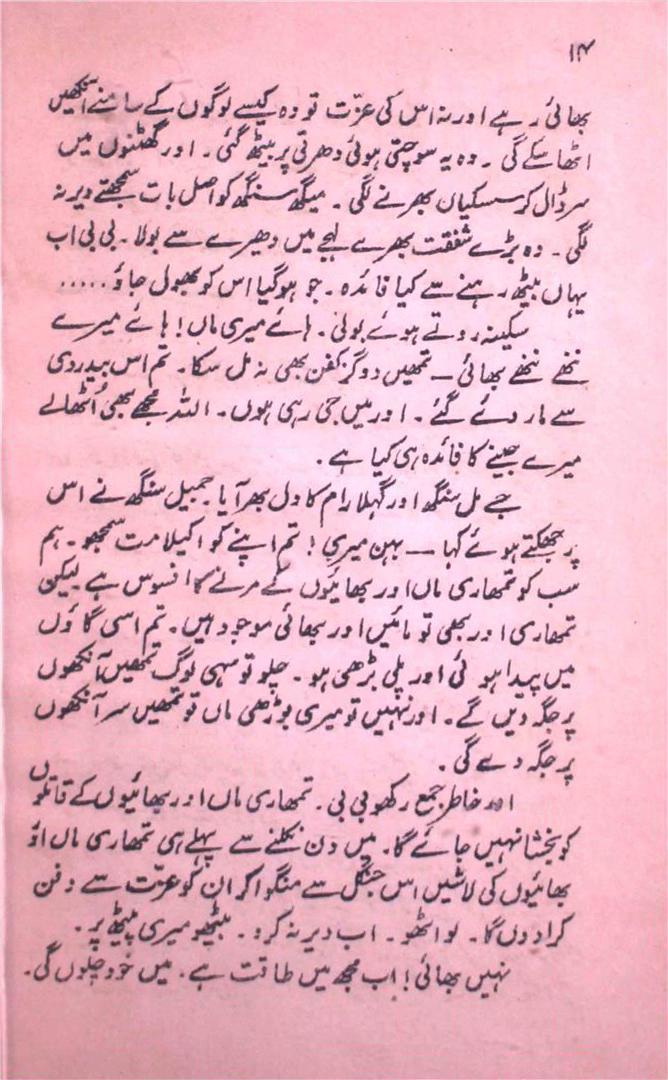 ۱۴
بھائی رہے اور نہ اس کی عزّت تو وہ کیسے لوگوں کے سامنے آنکھیں
اٹھا سکے گی ۔ وہ یہ سوچتی ہوئی دھرتی پر بیٹھ گئی ۔ اور گھٹنوں میں
سر ڈال کر سسکیاں بھرنے لگی ۔ میگھ سنگھ کو اصل بات سمجھتے دیر نہ
لگی ۔ وہ بڑے شفقت بھرے لہجے میں دھیرے سے بولا ۔ بی بی اب
یہاں بیٹھ رہنے سے کیا فائدہ ۔ جو ہوگیا اس کو بھول جاؤ.....
سکینہ روتے ہوئے بولی ۔ ہائے میری ماں! ہائے میرے
ننھے ننھے بھائی ــ تمھیں دو گز کفن بھی نہ مل سکا ۔ تم اس بیدردی
سے مار دئے گئے ۔ اور میں جی رہی ہوں ۔ اللہ مجھے بھی اُٹھالے
میرے جینے کا فائدہ ہی کیا ہے ۔
جے مل سنگھ اور گہلا رام کا دل بھر آیا ۔ جمیل سنگھ نے اس
پر جھکتے ہوئے کہا ــ بہن میری! تم اپنے کو اکیلا مت سمجھو ۔ ہم
سب کو تمھاری ماں اور بھائیوں کے مرنے کا افسوس ہے لیکن
تمھاری اور بھی تو مائیں اور بھائی موجود ہیں ۔ تم اسی گاؤں
میں پیدا ہوئی اور پلی بڑھی ہو ۔ چلو تو سہی لوگ تمھیں آنکھوں
پر جگہ دیں گے ۔ اور نہیں تو میری بوڑھی ماں تو تمھیں سر آنکھوں
پر جگہ دے گی ۔
اور خاطر جمع رکھو بی بی ۔ تمھاری ماں اور بھائیوں کے قاتلوں
کو بخشا نہیں جائے گا ۔ میں دن نکلنے سے پہلے ہی تمھاری ماں اور
بھائیوں کی لاشیں اس جنگل سے منگوا کر ان کو عزّت سے دفن
کرا دوں گا ۔ لو اٹھو ۔ اب دیر نہ کرو ۔ بیٹھو میری پیٹھ پر ۔
نہیں بھائی! اب مجھ میں طاقت ہے ۔ میں خود چلوں گی ۔